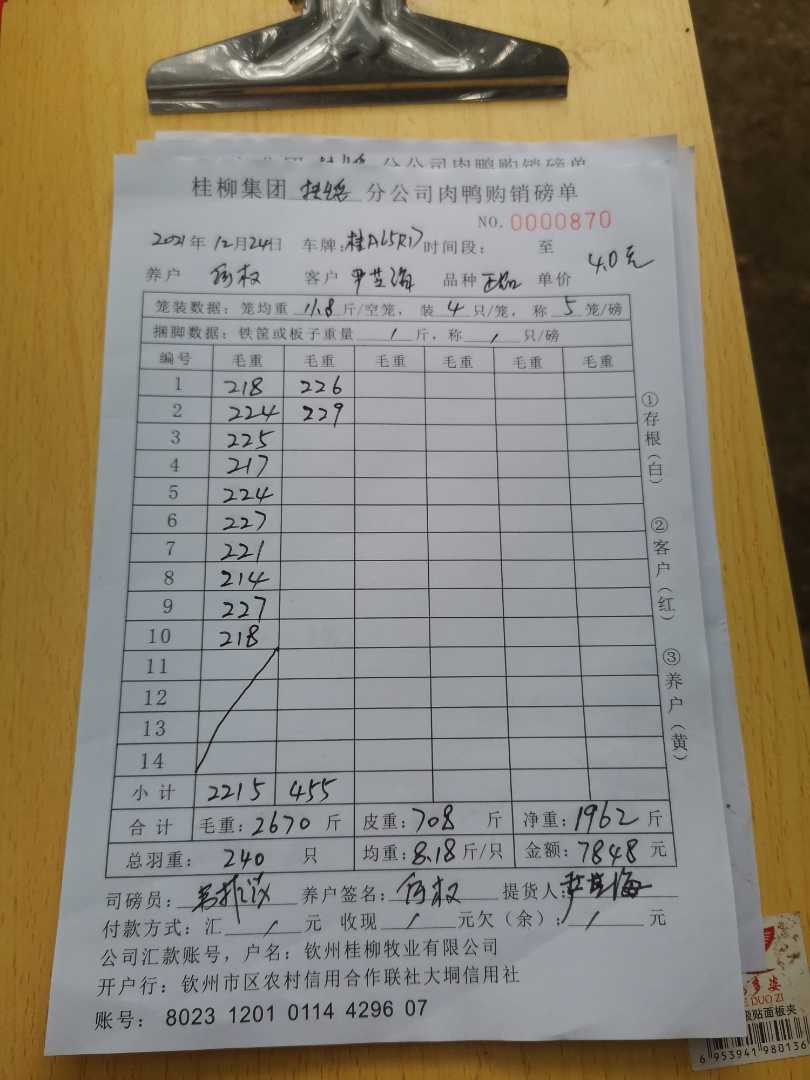 分公司肉鸭购销磅单
桂柳集团 分公司肉鸭购销磅单
NO. 0000870
2021年 12月24日 车牌: 时间段: 至
养户 何权 客户 尹芝海 品种 正品 单价 4.0元
笼装数据: 笼均重 11.8 斤/空笼, 装 4 只/笼, 称 5 笼/磅
捆脚数据: 铁筐或板子重量 / 斤, 称 / 只/磅
编号 毛重 毛重 毛重 毛重 毛重 毛重
1 218 226
2 224 229
3 225
4 217
5 224
6 227
7 221
8 214
9 227
10 218
11
12
13
14
小计 2215 455
合计 毛重: 2670 斤 皮重: 708 斤 净重: 1962 斤
总羽重: 240 只 均重: 8.18 斤/只 金额: 7848 元
司磅员: 养户签名: 何权 提货人: 尹芝海
付款方式: 汇 / 元 收现 / 元欠(余): / 元
公司汇款账号, 户名: 钦州桂柳牧业有限公司
开户行: 钦州市区农村信用合作联社大垌信用社
账号: 8023 1201 0114 4296 07
①存根(白)
②客户(红)
③养户(黄)
多姿
DUO ZI
贴面板夹
6 953941 980136